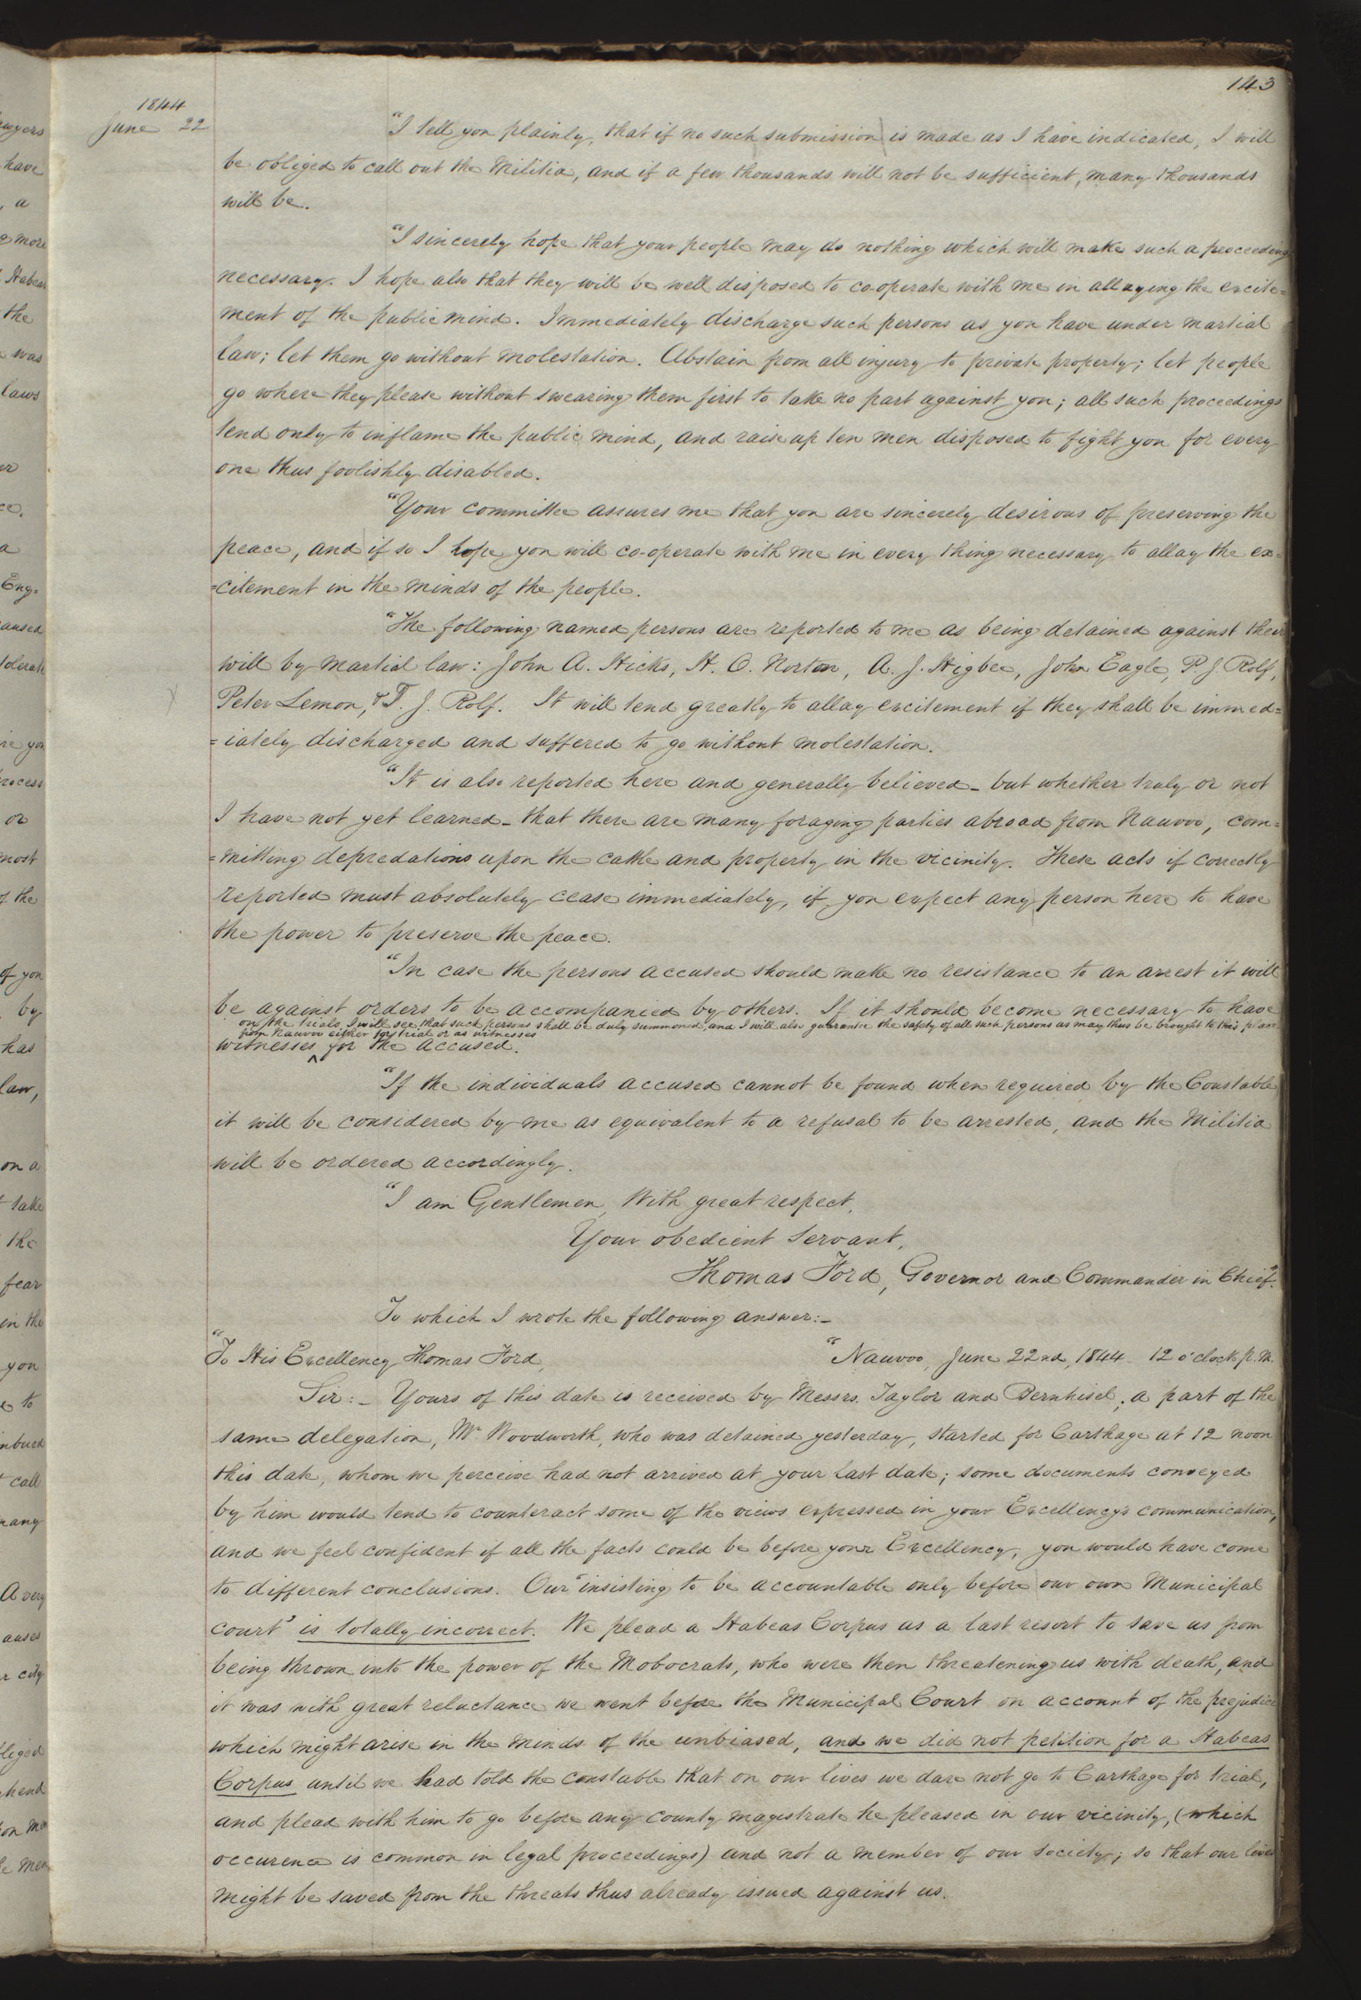 143
1844
June 22
"I tell you plainly, that if no such submission is made as I have indicated, I will
be obliged to call out the Militia, and if a few thousands will not be sufficient, many thousands
will be.
"I sincerely hope that your people may do nothing which will make such a proceeding
necessary. I hope also that they will be well disposed to cooperate with me in allaying the excite=
ment of the public mind. Immediately discharge such persons as you have under martial
law; let them go without molestation. Abstain from all injury to private property; let people
go where they please without swearing them first to take no part against you; all such proceedings
tend only to inflame the public mind, and raise up ten men disposed to fight you for every
one thus foolishly disabled.
"Your committee assures me that you are sincerely desirous of preserving the
peace, and if so I hope you will co-operate with me in every thing necessary to allay the ex=
=citement in the minds of the people.
"The following named persons are reported to me as being detained against their
will by martial law: John A. Hicks, H. O. Norton, A. J. Higbee, John Eagle, P. J. Rolf,
Peter Lemon, & T. J. Rolf. It will tend greatly to allay excitement if they shall be immed=
=iately discharged and suffered to go without molestation.
"It is also reported here and generally believed - but whether truly or not
I have not yet learned - that there are many foraging parties abroad from Nauvoo, com=
=mitting depredations upon the cattle and property in the vicinity. These acts if correctly
reported must absolutely cease immediately, if you expect any person here to have
the power to preserve the peace.
"In case the persons accused should make no resistance to an arrest it will
be against orders to be accompanied by others. If it should become necessary to have
on the trials, I will see that such persons shall be duly summoned, and I will also guarantee the safety of all such persons as may thus be brought to this place
from Nauvoo either for trial or as witnesses
witnesses ^ for the accused.
"If the individuals accused cannot be found when required by the Constable
it will be considered by me as equivalent to a refusal to be arrested, and the Militia
will be ordered accordingly.
"I am Gentlemen, With great respect,
Your obedient Servant,
Thomas Ford, Governor and Commander in Chief."
To which I wrote the following answer:-
"To His Excellency Thomas Ford,
"Nauvoo, June 22nd, 1844 12 o'clock p.m.
Sir:- Yours of this date is received by Messrs. Taylor and Bernhisel; a part of the
same delegation, Mr. Woodworth, who was detained yesterday, started for Carthage at 12 noon
this date, whom we perceive had not arrived at your last date; some documents conveyed
by him would tend to counteract some of the views expressed in your Excellency's communication,
and we feel confident if all the facts could be before your Excellency, you would have come
to different conclusions. Our "insisting to be accountable only before our own Municipal
court" is totally incorrect. We plead a Habeas Corpus as a last resort to save us from
being thrown into the power of the Mobocrats, who were then threatening us with death, and
it was with great reluctance we went before the Municipal Court on account of the prejudice
which might arise in the minds of the unbiased, and we did not petition for a Habeas
Corpus until we had told the constable that on our lives we dare not go to Carthage for trial,
and plead with him to go before any county magistrate he pleased in our vicinity, (which
occurence is common in legal proceedings) and not a member of our society; so that our lives
might be saved from the threats thus already issued against us.